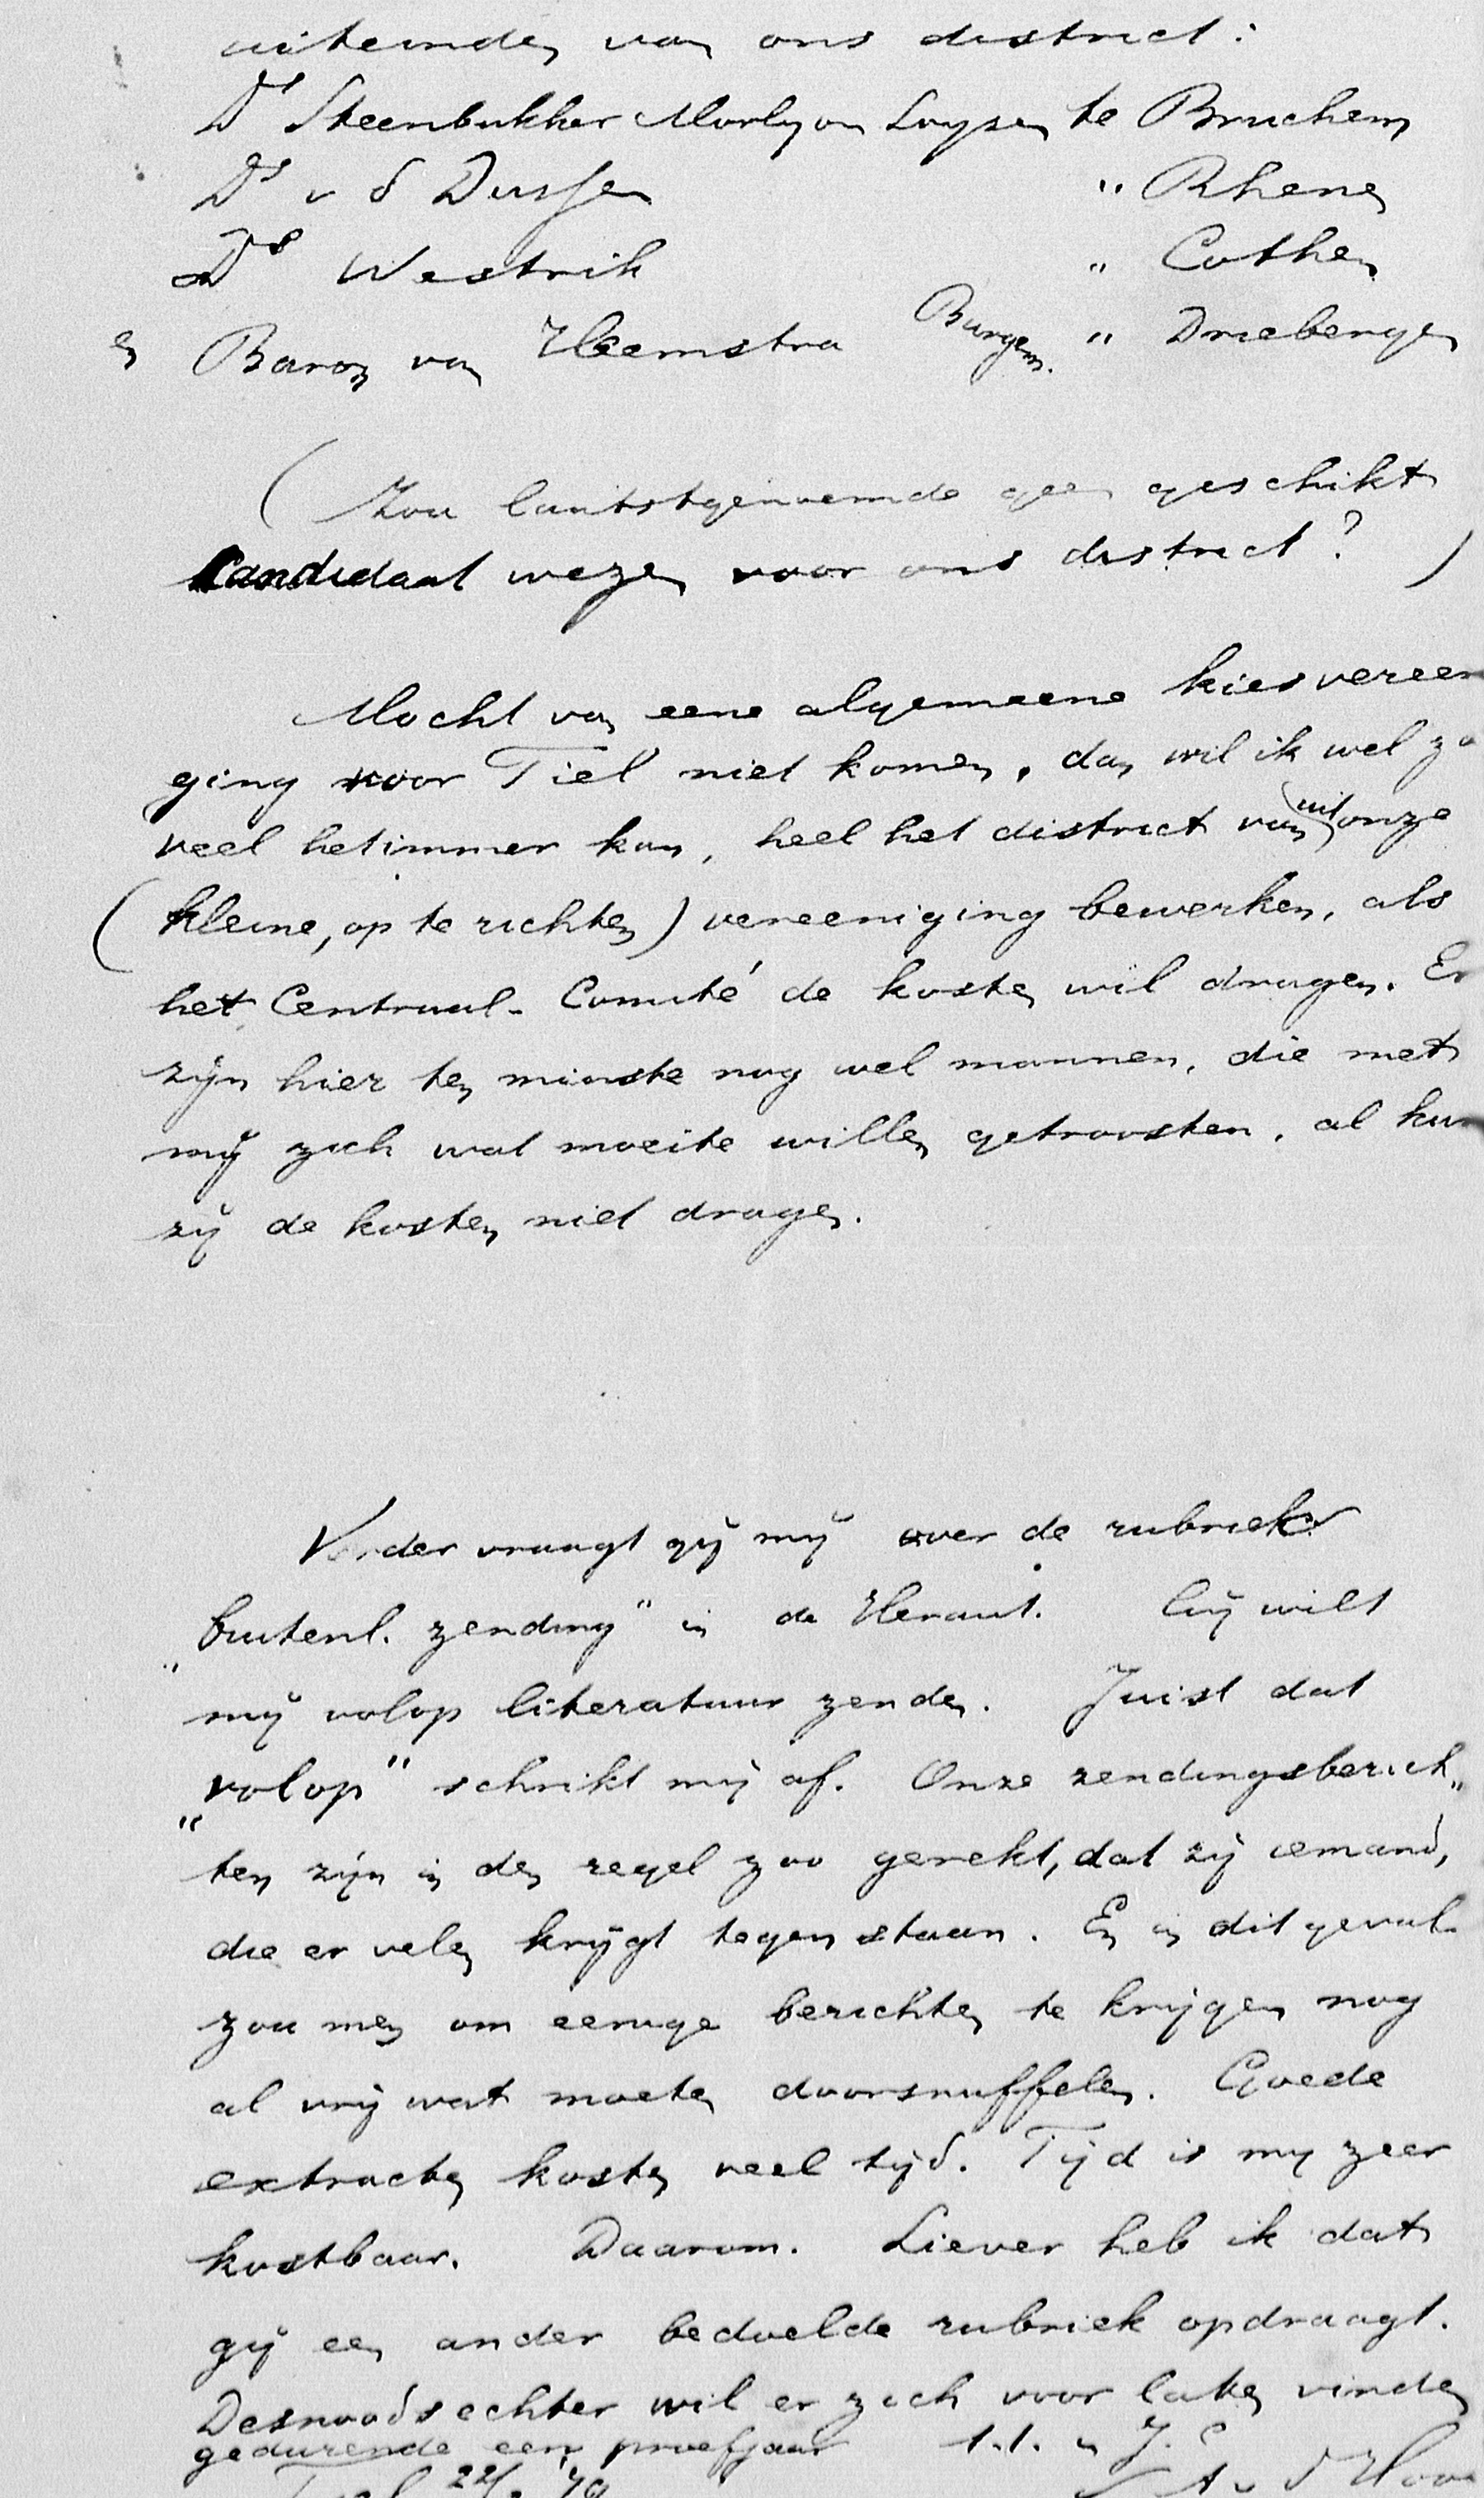 uiteinden van ons district:
Ds Steenbakker Morlyon Loysen te Bruchem
Ds v d Dussen " Rhenen
Ds Westrik " Cothen
en Baron van Heemstra Burgem. " Driebergen
(Zou laatstgenoemde geen geschikt
candidaat wezen voor ons district?)
Mocht van eene algemeene kiesvereeni
ging voor Tiel niet komen, dan wil ik wel zo
veel hetimmer kan, heel het district van uit onze
(kleine, op te richten) vereeniging bewerken, als
het Centraal-Comité de kosten wil dragen. Er
zijn hier ten minste nog wel mannen, die met
mij zich wat moeite willen getroosten, al kun
zij de kosten niet dragen.
Verder vraagt gij mij over de rubriek
"buitenl. zending" in de Heraut. Gij wilt
mij volop literatuur zenden. Juist dat
"volop" schrikt mij af. Onze zendingsberich„
ten zijn in den regel zoo gerekt, dat zij iemand,
die er velen krijgt tegenstaan. En in dit geval
zou men om eenige berichten te krijgen nog
al vrij wat moeten doorsnuffelen. Goede
extracten kosten veel tijd. Tijd is mij zeer
kostbaar. Daarom. Liever heb ik dat
gij een ander bedoelde rubriek opdraagt.
Desnoods echter wil er zich voor laten vinden
gedurende een proefjaar t.t. in J. C.
Tiel 22/ '79 A v d Hoo